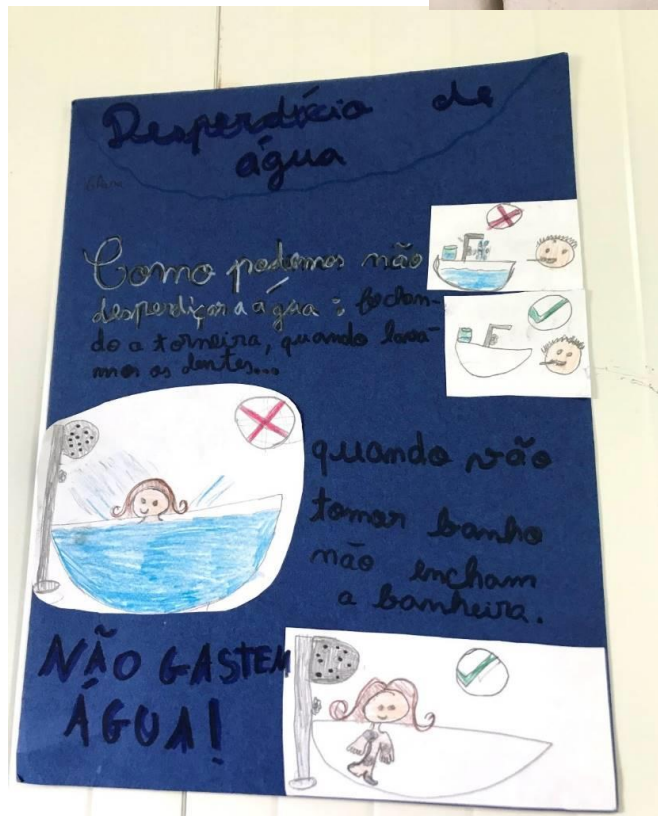 Desperdício de
água
Como podemos não
desperdiçar a água : fechan-
do a torneira, quando lava-
mos os dentes...
quando vão
tomar banho
não encham
a banheira.
NÃO GASTEM
ÁGUA!